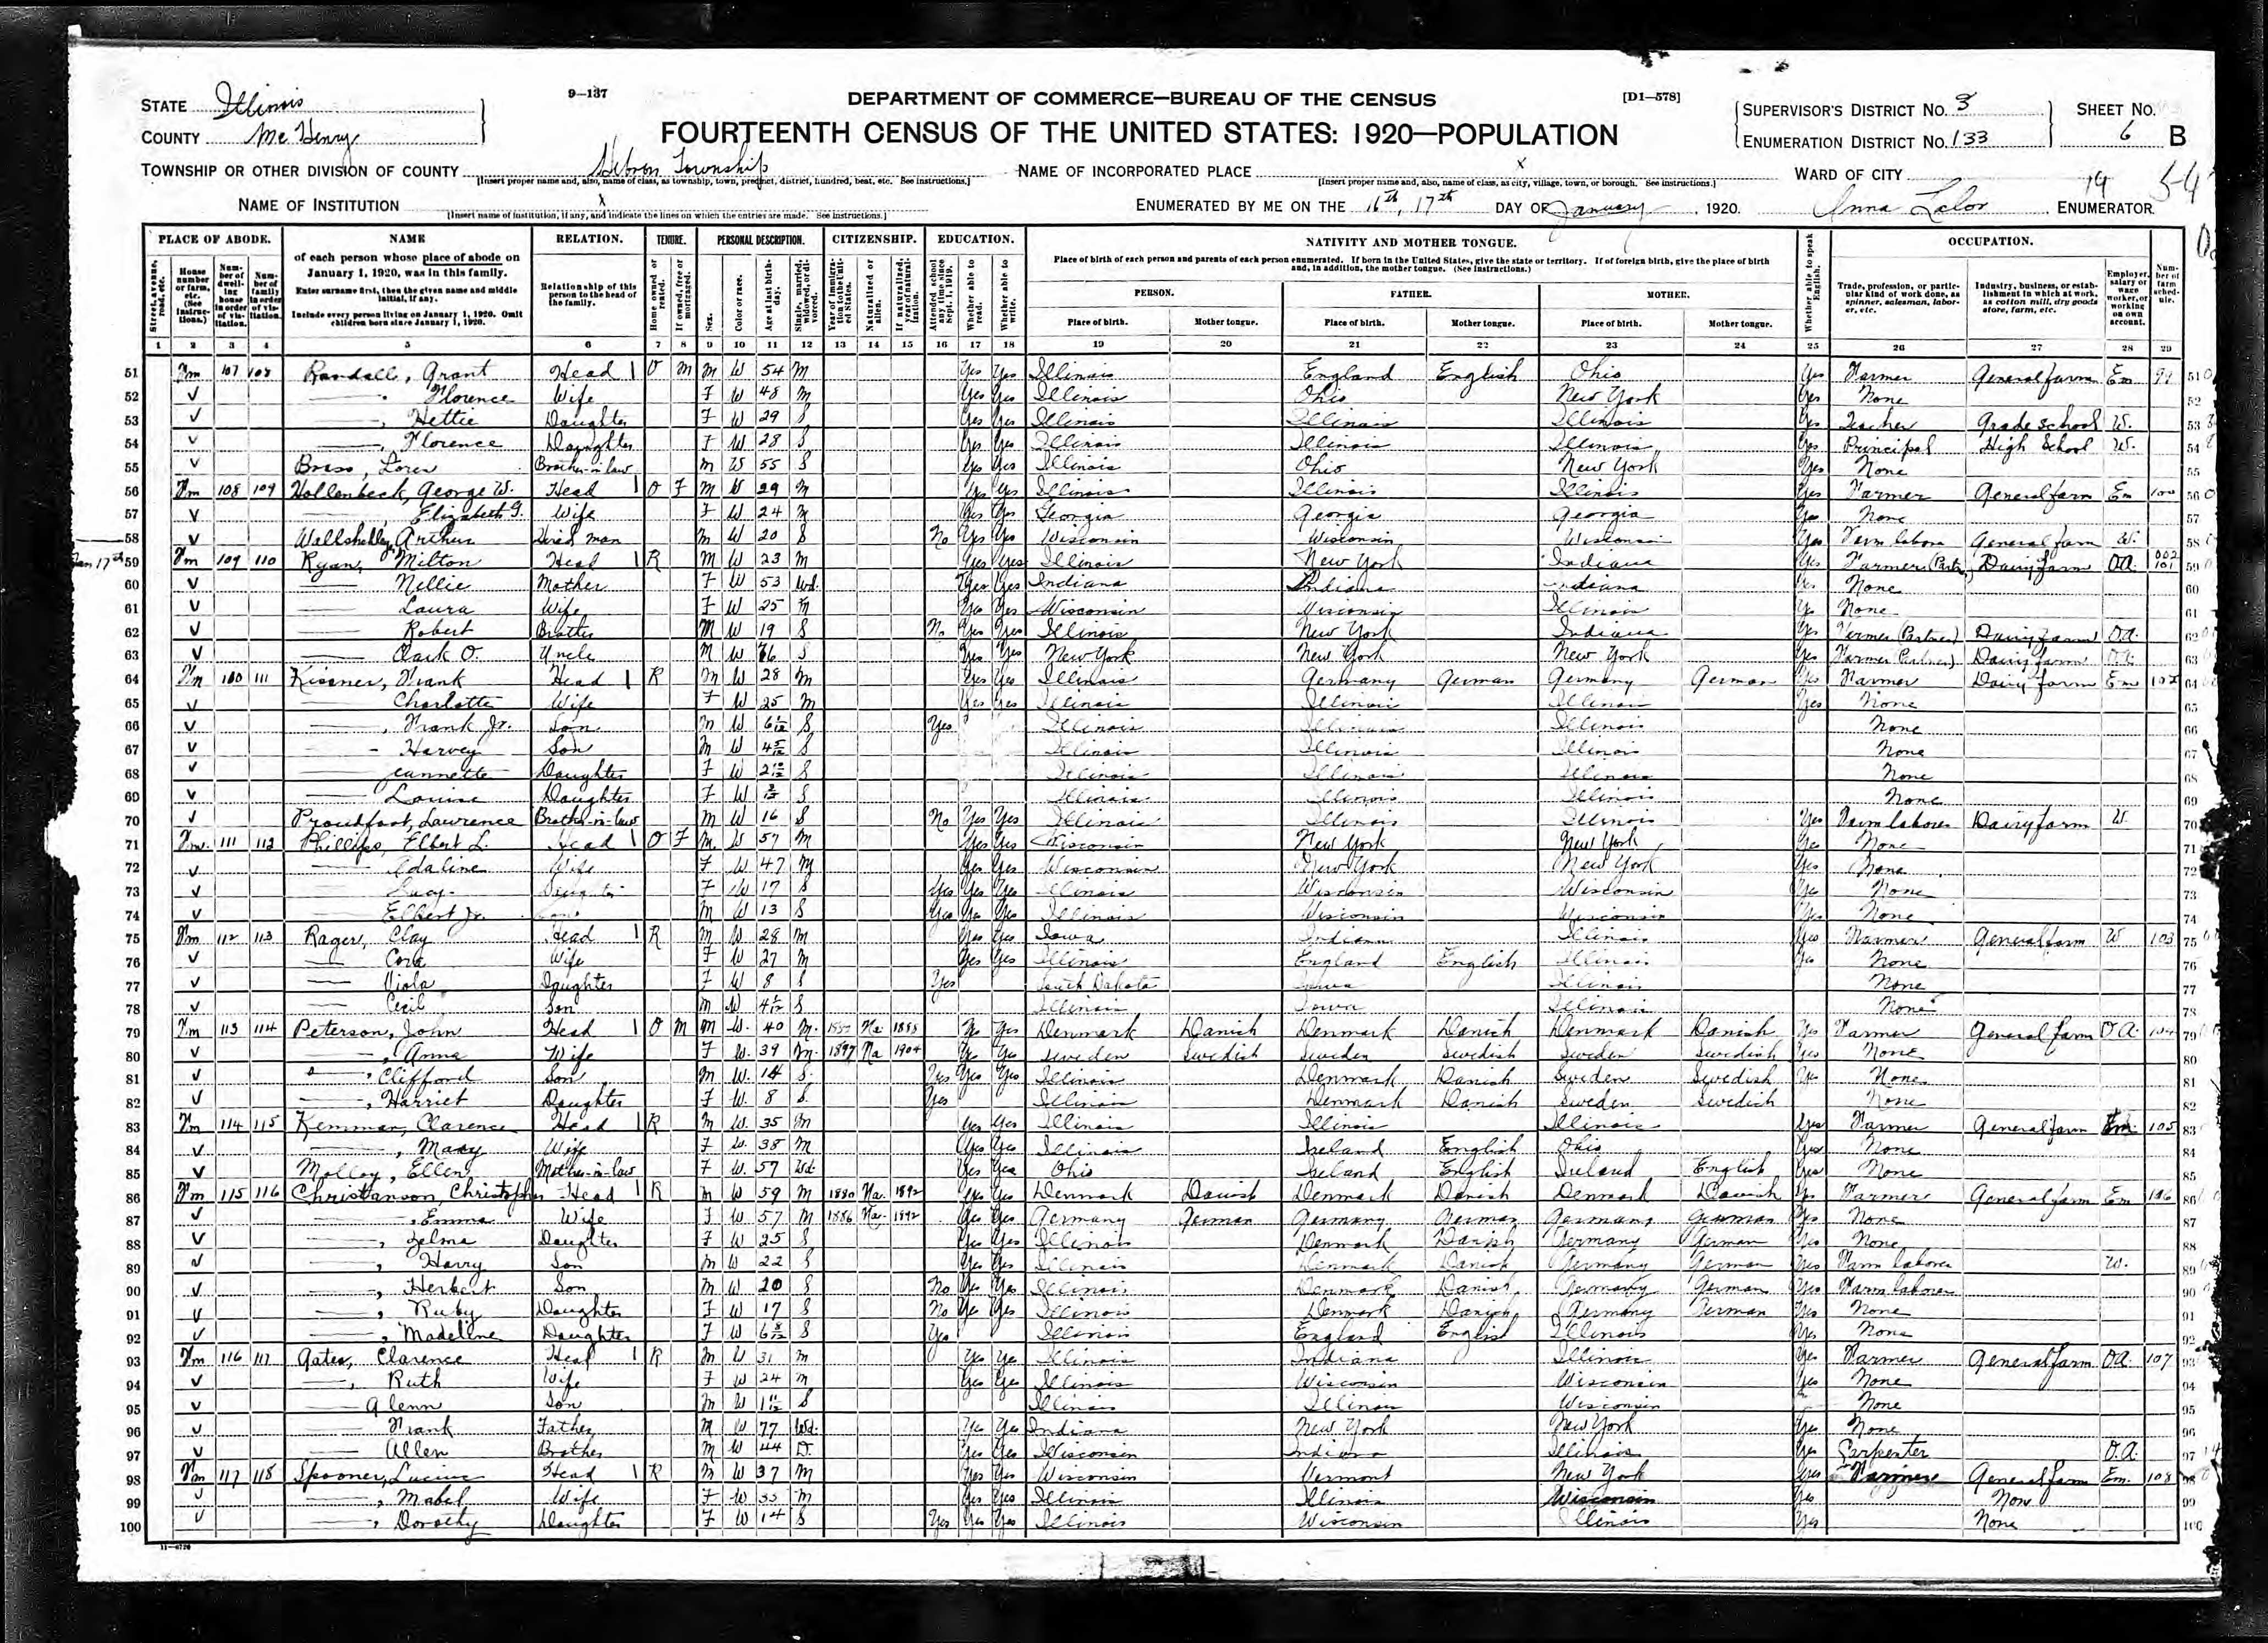 9—137
DEPARTMENT OF COMMERCE—BUREAU OF THE CENSUS
[D1—578]
STATE Illinois
COUNTY McHenry
FOURTEENTH CENSUS OF THE UNITED STATES: 1920—POPULATION
SUPERVISOR'S DISTRICT No. 3
ENUMERATION DISTRICT No. 133
SHEET No. 6 B
TOWNSHIP OR OTHER DIVISION OF COUNTY Hebron Township
[Insert proper name and, also, name of class, as township, town, precinct, district, hundred, beat, etc. See instructions.]
NAME OF INCORPORATED PLACE x
[Insert proper name and, also, name of class, as city, village, town, or borough. See instructions.]
WARD OF CITY
NAME OF INSTITUTION x
[Insert name of institution, if any, and indicate the lines on which the entries are made. See instructions.]
ENUMERATED BY ME ON THE 16th, 17th DAY OF January, 1920. Anna Lalor ENUMERATOR.
PLACE OF ABODE. NAME RELATION. TENURE. PERSONAL DESCRIPTION. CITIZENSHIP. EDUCATION. NATIVITY AND MOTHER TONGUE. OCCUPATION.
of each person whose place of abode on January 1, 1920, was in this family.
Enter surname first, then the given name and middle initial, if any.
Include every person living on January 1, 1920. Omit children born since January 1, 1920.
Relationship of this person to the head of the family.
Place of birth of each person and parents of each person enumerated. If born in the United States, give the state or territory. If of foreign birth, give the place of birth and, in addition, the mother tongue. (See instructions.)
PERSON. FATHER. MOTHER.
Place of birth. Mother tongue. Place of birth. Mother tongue. Place of birth. Mother tongue.
1 2 3 4 5 6 7 8 9 10 11 12 13 14 15 16 17 18 19 20 21 22 23 24 25 26 27 28 29
51 Fm 107 108 Randall, Grant Head 1 O M M W 54 M Yes Yes Illinois England English Ohio Yes Farmer General farm Em 99
52 Florence Wife F W 48 M Yes Yes Illinois Ohio New York Yes None
53 Hettie Daughter F W 29 S Yes Yes Illinois Illinois Illinois Yes Teacher Grade school W.
54 Florence Daughter F W 28 S Yes Yes Illinois Illinois Illinois Yes Principal High School W.
55 Loren Brother-in-law M W 55 S Yes Yes Illinois Ohio New York Yes None
56 Fm 108 109 Hollenbeck, George W. Head 1 O F M W 29 M Yes Yes Illinois Illinois Illinois Yes Farmer General farm Em 100
57 Elizabeth G. Wife F W 24 M Yes Yes Georgia Georgia Georgia Yes None
58 Arthur Hired man M W 20 S No Yes Yes Wisconsin Wisconsin Wisconsin Yes Farm labor General farm W.
Jan 17th 59 Fm 109 110 Ryan, Milton Head 1 R M W 23 M Yes Yes Illinois New York Indiana Yes Farmer Dairy farm O.A. 101
60 Nellie Mother F W 53 Wd. Yes Yes Indiana Indiana Indiana Yes None
61 Laura Wife F W 25 M Yes Yes Wisconsin Wisconsin Illinois Yes None
62 Robert Brother M W 19 S No Yes Yes Illinois New York Indiana Yes Farmer (Partner) Dairy farm O.A.
63 Clark O. Uncle M W 66 S Yes Yes New York New York New York Yes Farmer (Partner) Dairy farm O.A.
64 Fm 110 111 Kissner, Frank Head 1 R M W 28 M Yes Yes Illinois Germany German Germany German Yes Farmer Dairy farm Em 102
65 Charlotte Wife F W 25 M Yes Yes Illinois Illinois Illinois Yes None
66 Frank Jr. Son M W S Yes Illinois Illinois Illinois None
67 Harvey Son M W 4 5/12 S Illinois Illinois Illinois None
68 Jeannette Daughter F W 2 10/12 S Illinois Illinois Illinois None
69 Louise Daughter F W S Illinois Illinois Illinois None
70 Proudfoot, Lawrence Brother-in-law M W 16 S No Yes Yes Illinois Illinois Illinois Yes Farm laborer Dairy farm W.
71 Fm. 111 112 Phillips, Elbert L. Head 1 O F M. W 57 M Yes Yes Wisconsin New York New York Yes None
72 Adaline Wife F W 47 M Yes Yes Wisconsin New York New York Yes None
73 Lucy Daughter F W 17 S Yes Yes Yes Illinois Wisconsin Wisconsin Yes None
74 Elbert Jr. Son M W 13 S Yes Yes Yes Illinois Wisconsin Wisconsin Yes None
75 Fm 112 113 Rager, Clay Head 1 R M W 28 M Yes Yes Iowa Indiana Illinois Yes Farmer General farm W 103
76 Cora Wife F W 27 M Yes Yes Illinois England English Illinois Yes None
77 Viola Daughter F W 8 S Yes South Dakota Iowa Illinois None
78 Cecil Son M W S Illinois Iowa Illinois None
79 Fm 113 114 Peterson, John Head 1 O M M W. 40 M. Na 1888 Yes Denmark Danish Denmark Danish Denmark Danish Yes Farmer General farm O.A. 104
80 Anna Wife F W. 39 M. 1897 Na 1904 Yes Yes Sweden Swedish Sweden Swedish Sweden Swedish Yes None
81 Clifford Son M W. 14 S. Yes Yes Yes Illinois Denmark Danish Sweden Swedish Yes None
82 Harriet Daughter F W. 8 S. Yes Illinois Denmark Danish Sweden Swedish None
83 Fm 114 115 Kemman, Clarence Head 1 R M W. 35 M Yes Yes Illinois Illinois Illinois Yes Farmer General farm Em. 105
84 Mary Wife F W. 38 M Yes Yes Illinois Ireland English Ohio Yes None
85 Molloy, Ellen Mother-in-law F W. 57 Wd. Yes Yes Ohio Ireland English Ireland English Yes None
86 Fm 115 116 Christianson, Christopher Head 1 R M W 59 M 1880 Na. 1892 Yes Yes Denmark Danish Denmark Danish Denmark Danish Yes Farmer General farm Em 106
87 Emma Wife F W 57 M 1886 Na. 1892 Yes Yes Germany German Germany German Germany German Yes None
88 Zelma Daughter F W 25 S Yes Yes Illinois Denmark Danish Germany German Yes None
89 Harry Son M W 22 S Yes Yes Illinois Denmark Danish Germany German Yes Farm laborer W.
90 Herbert Son M W 20 S No Yes Yes Illinois Denmark Danish Germany German Yes Farm laborer
91 Ruby Daughter F W 17 S No Yes Yes Illinois Denmark Danish Germany German Yes None
92 Madeline Daughter F W 6 8/12 S Yes Illinois England English Illinois Yes None
93 Fm 116 117 Gates, Clarence Head 1 R M W 31 M Yes Yes Illinois Indiana Illinois Yes Farmer General farm O.A. 107
94 Ruth Wife F W 24 M Yes Yes Illinois Wisconsin Wisconsin Yes None
95 Glenn Son M W 1 11/12 S Illinois Illinois Wisconsin None
96 Frank Father M W 77 Wd. Yes Yes Indiana New York New York Yes None
97 Allen Brother M W 44 D. Yes Yes Wisconsin Indiana Illinois Yes Carpenter O.A.
98 Fm 117 118 Spooner, Lucius Head 1 R M W 37 M Yes Yes Wisconsin Vermont New York Yes Farmer General farm Em. 108
99 Mabel Wife F W 35 M Yes Yes Illinois Illinois Wisconsin Yes None
100 Dorothy Daughter F W 14 S Yes Yes Yes Illinois Wisconsin Illinois Yes None